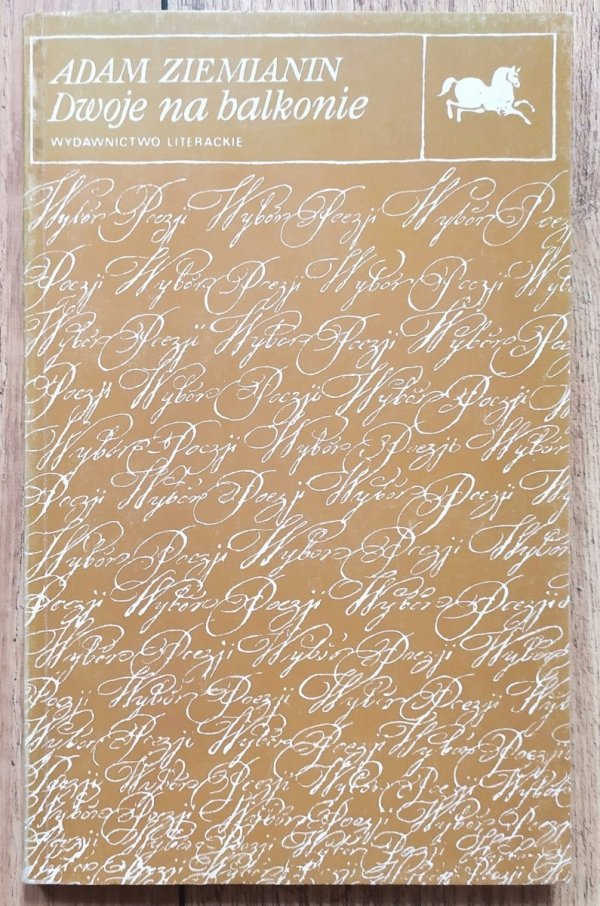 ADAM ZIEMIANIN
Dwoje na balkonie
WYDAWNICTWO LITERACKIE
Wybór Poezji Wybór Poezji Wybór Poezji
Poezji Wybór Poezji Wybór Poezji Wybór
Wybór Poezji Wybór Poezji Wybór Poezji
Poezji Wybór Poezji Wybór Poezji Wybór
Wybór Poezji Wybór Poezji Wybór
Poezji Wybór Poezji Wybór Poezji Wybór
Wybór Poezji Wybór Poezji Wybór
Poezji Wybór Poezji Wybór Poezji
Wybór Poezji Wybór Poezji Wybór
Poezji Wybór Poezji Wybór Poezji Wybór
Wybór Poezji Wybór Poezji Wybór Poezji
Poezji Wybór Poezji Wybór Poezji Wybór
Wybór Poezji Wybór Poezji Wybór Poezji